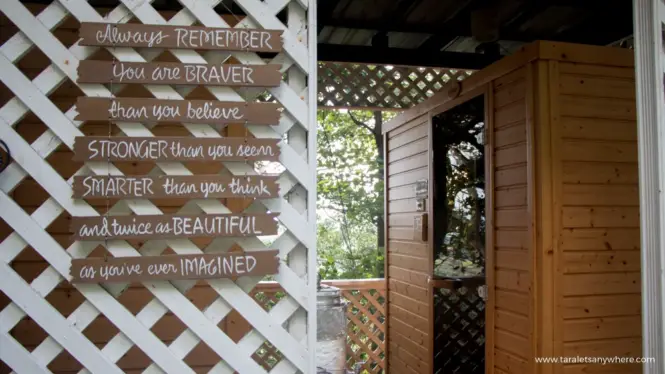 Always REMEMBER
You are BRAVER
than you believe
STRONGER than you seem
SMARTER than you think
and twice as BEAUTIFUL
as you've ever IMAGINED
www.taraletsanywhere.com